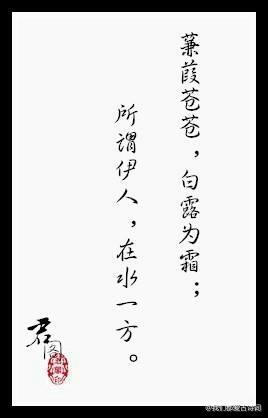 蒹葭苍苍，白露为霜；
所谓伊人，在水一方。
君
阁
@我们都爱古诗词